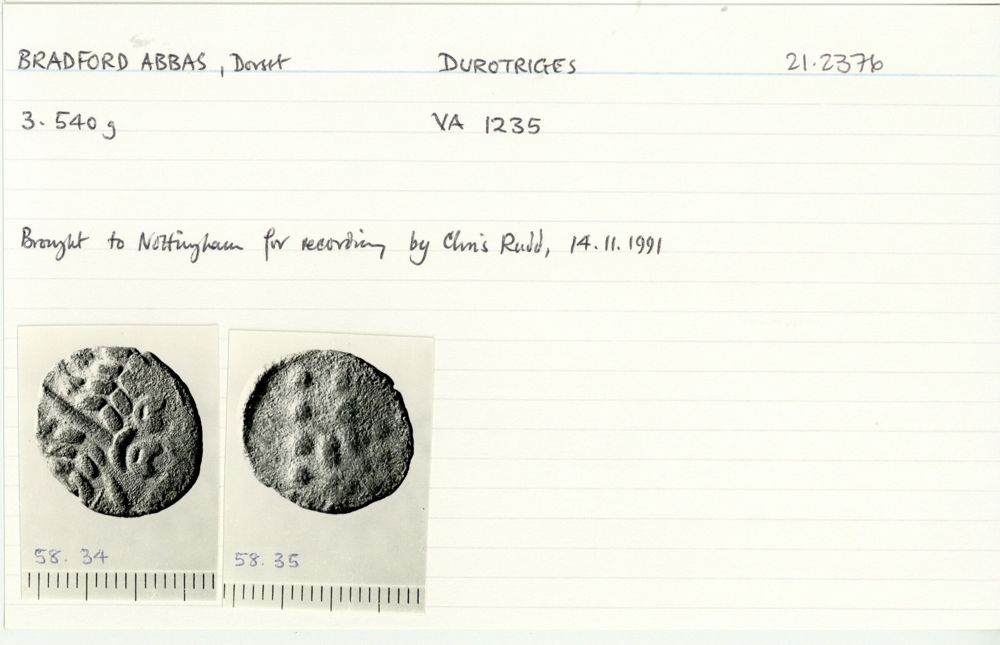 BRADFORD ABBAS, Dorset DUROTRIGES 21.2376
3.540 g VA 1235
Brought to Nottingham for recording by Chris Rudd, 14.11.1991
58.34 58.35